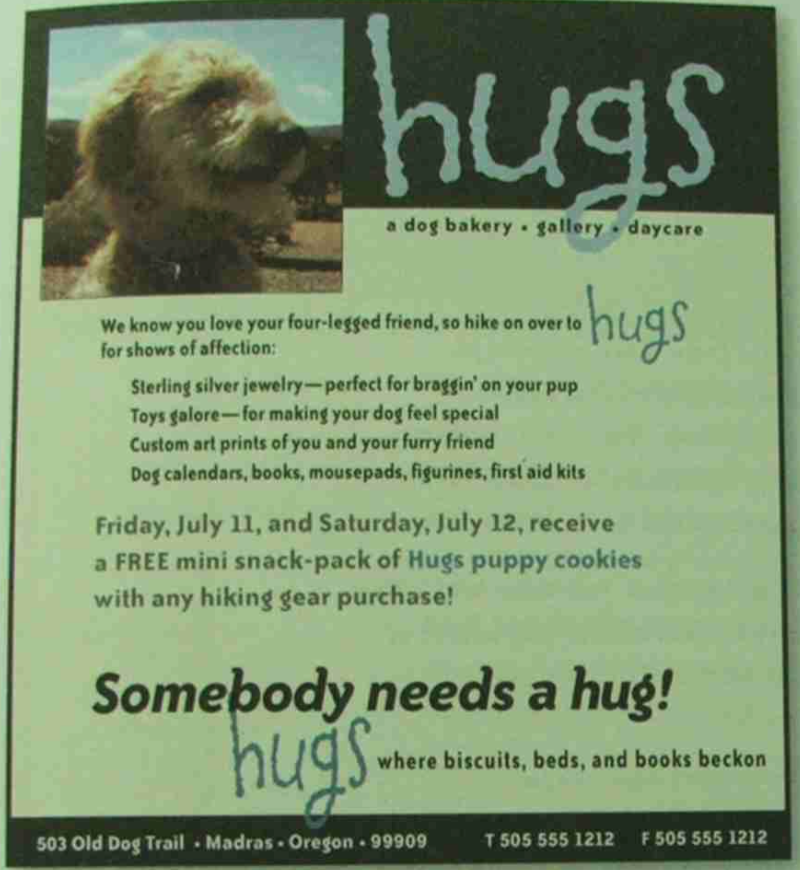 hugs
a dog bakery • gallery • daycare
We know you love your four-legged friend, so hike on over to hugs
for shows of affection:
Sterling silver jewelry—perfect for braggin' on your pup
Toys galore—for making your dog feel special
Custom art prints of you and your furry friend
Dog calendars, books, mousepads, figurines, first aid kits
Friday, July 11, and Saturday, July 12, receive
a FREE mini snack-pack of Hugs puppy cookies
with any hiking gear purchase!
Somebody needs a hug!
hugs where biscuits, beds, and books beckon
503 Old Dog Trail • Madras • Oregon • 99909 T 505 555 1212 F 505 555 1212